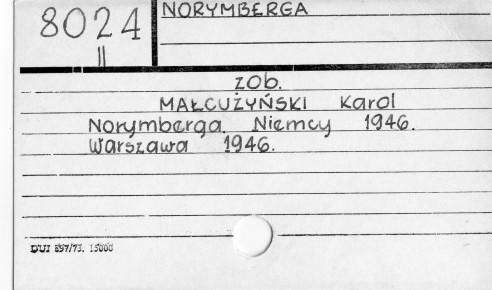 8024
II
NORYMBERGA
zob.
MAŁCUŻYŃSKI Karol
Norymberga. Niemcy 1946.
Warszawa 1946.
DUI 897/73. 15000